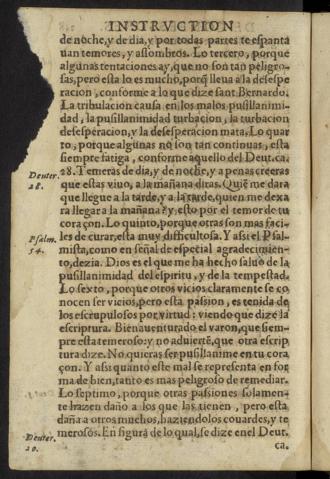 INSTRVCTION
de noche, y de dia, y por todas partes te espanta
uan temores, y assombros. Lo tercero, porque
algunas tentaciones ay, que no son tan peligro-
sas, pero esta lo es mucho, porq̃ lleua a la desespe
racion, conforme a lo que dize sant Bernardo.
La tribulacion causa en los malos pusillanimi-
dad, la pusillanimidad turbacion, la turbacion
desesperacion, y la desesperacion mata. Lo quar
to, porque algunas no son tan continuas, esta
siempre fatiga, conforme aquello del Deut. ca.
Deuter. 28.
28. Temeras de dia, y de noche, y a penas creeras
que estas viuo, a la mañana diras. Quiẽ me dara
que llegue a la tarde, y a la tarde, quien me dexa
ra llegar a la mañana? y esto por el temor de tu
coraçon. Lo quinto, porque otras son mas faci-
Psalm. 54.
les de curar, esta muy difficultosa. Y assi el Psal-
mista, como en señal de especial agradecimien-
to, dezia. Dios es el que me ha hecho saluo de la
pusillanimidad del espiritu, y de la tempestad.
Lo sexto, porque otros vicios claramente se co
nocen ser vicios, pero esta passion, es tenida de
los escrupulosos por virtud: viendo que dize la
escriptura. Bienauenturado el varon, que siem-
pre esta temeroso: y no aduiertẽ, que otra escrip
tura dize. No quieras ser pusillanime en tu cora
çon. Y assi quanto este mal se representa en for
ma de bien, tanto es mas peligroso de remediar.
Lo septimo, porque otras passiones solamen-
te hazen daño a los que las tienen, pero esta
daña a otros muchos, haziendolos couardes, y te
Deuter. 20.
merosos. En figura de lo qual, se dize en el Deut.
ca.